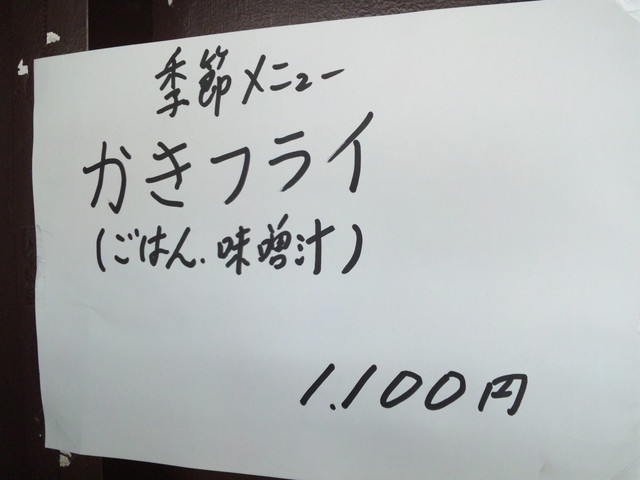 季節メニュー
かきフライ
(ごはん、味噌汁)
1,100円